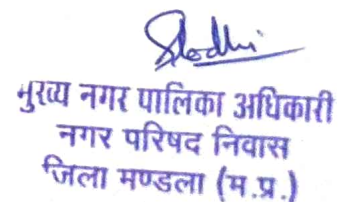 मुख्य नगर पालिका अधिकारी
नगर परिषद निवास
जिला मण्डला (म.प्र.)